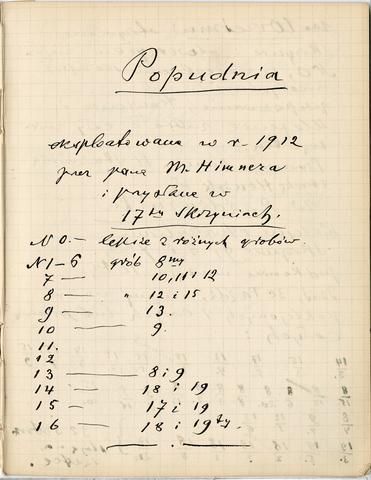 Popudnia
eksploatowana w r. 1912
przez pana M. Himnera
i przysłane w
17tu Skrzyniach.
N 0. — lekkie z różnych grobów.
N 1–6 grób 8my
7 — 10, 11 i 12
8 — " 12 i 15
9 — 13.
10 — 9.
11.
12
13 — 8 i 9
14 — 18 i 19
15 — 17 i 19
16 — 18 i 19ty.